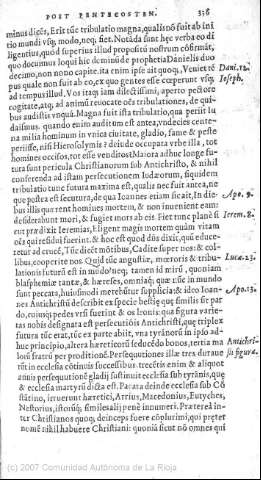 POST PENTECOSTEN. 336
minus dicēs, Erit tūc tribulatio magna, qualis nō fuit ab ini
tio mundi vsq; modo, neq; fiet. Notāda sunt hęc verba eo di
ligentius, quod superius illud propositū nostrum cōfirmāt,
quo docuimus loqui hic dominū de prophetia Danielis duo
decimo, non nono capite. ita enim ipse ait quoq;, Veniet tē Dani. 12.
pus quale non fuit ab eo, ex quo gentes esse cœperunt vsq; Ioseph.
ad tempus illud. Vos itaq; iam dilectissimi, aperto pectore
cogitate, atq; ad animū reuocate oēs tribulationes, de qui-
bus auditis vnquā. Magna fuit ista tribulatio, qua perijt Iu
daismus. quando enim auditum est antea, vndecies cente-
na milia hominum in vnica ciuitate, gladio, fame & peste
perijsse, nisi Hierosolymis? deinde occupata vrbe illa, tot
homines occisos, tot esse venditos? Maiora adhuc longe fu-
tura sunt pericula Christianorum sub Antichristo, & nihil
conferenda ad istam persecutionem Iudæorum, siquidem
tribulatio tunc futura maxima est, qualis nec fuit antea, ne
que postea est secutura, de qua Ioannes etiam sic ait, In die- Apo. 9.
bus illis quærent homines mortem, & non inuenient eam:
desiderabunt mori, & fugiet mors ab eis. Fiet tunc planè si
cut prædixit Ieremias, Eligent magis mortem quàm vitam Ierem. 8.
oēs qui residui fuerint. & hoc est quod dñs dixit, qui educe
retur ad crucē, Tūc dicēt mōtibus, Cadite super nos: & col-
libus, cooperite nos. Quid tūc angustiæ, mœroris & tribu- Luca. 23.
lationis futurū est in mūdo? neq; tamen id mirū, quoniam
blasphemiæ tantæ, & hæreses, omniaq; quæ nūc in mundo
sunt peccata, huiusmodi merebūtur supplicia: & ideo Ioan- Apo. 13.
nes Antichristū describit ex specie bestiæ quę similis sit par
do, cuiusq; pedes vrsi fuerint & os leonis: qua figura varie-
tas nobis designata est persecutiōis Antichristi, quæ triplex
futura tūc erat, tūc ex parte abijt, vna tyrānorū in ipso ad-
huc principio, altera hæreticorū seducēdo bonos, tertia ma Antichri-
lorū fratrū per proditionē. Persequutiones illæ tres duraue sti figura.
rūt in ecclesia cōtinuis successibus. trecētis enim & aliquot
annis persequutionē gladij sustinuit ecclesia sub tyrānis, que
& ecclesia martyrū dicta est. Pacata deinde ecclesia sub Cō
stātino, irruerunt hæretici, Arrius, Macedonius, Eutyches,
Nestorius, istorūq; similes alij penè innumeri. Præterea in-
ter Christianos quoq; deinceps fuere cōplurimi, qui præter
nomē nihil habuere Christiani: quoniā sicut nō omnes qui
(c) 2007 Comunidad Autónoma de La Rioja